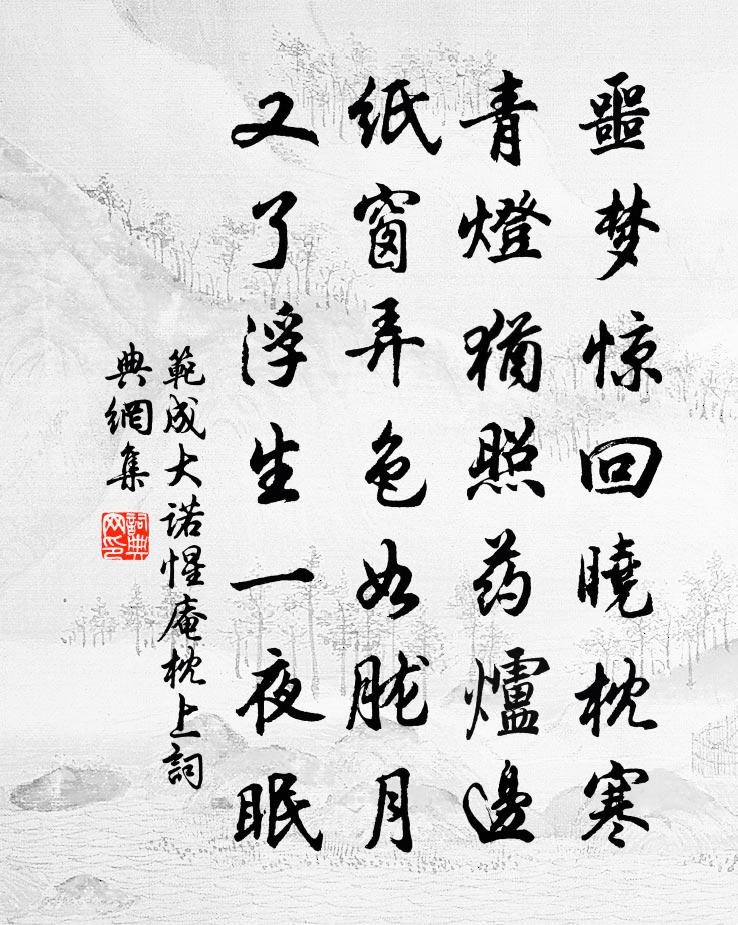 噩梦惊回曉枕寒
青燈猶照药爐邊
紙窗弄色如胧月
又了浮生一夜眠
範成大诺惺庵枕上詞
典網集
詞典网印